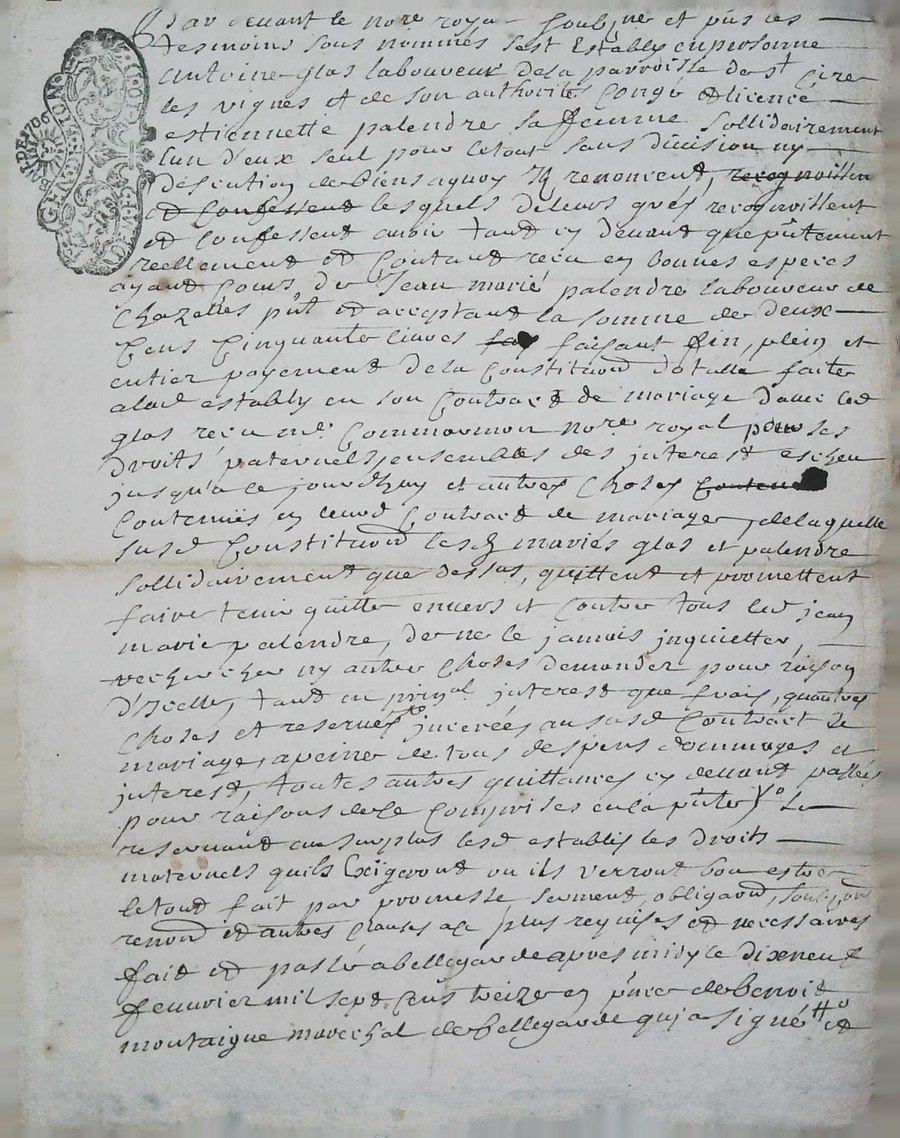 Par devant le nore royal soubzne et pns les
tesmoins sous nommés sest Estably en personne
antoine glas laboureur de la parroisse de st Cire
les vignes et de son authorité Congé et licence
estiennette palendre sa femme sollidairement
lun d'eux seul pour le tout sans division ny
discution de biens a quoy Ils renoncent, recognoissen
et Confessent lesquels de leurs grés recognoissent
et Confessent avoir tant cy devant que pntement
reellement et Contant receu en bonnes especes
ayant Cours, de Jean marie palendre laboureur de
Chazelles pnt et acceptant la somme de deux
Cens Cinquante livres faisant fin, plein et
entier payement de la Constitution dotalle faite
alad establys en son Contract de mariage d'avec led
glas receu me Commarmon nore royal pour ses
droits paternels, ensembles des interest escheu
jusqu'a ce jourdhuy et autres Choses Contenu
Contenües en leurd Contract de mariage, de laquelle
susd Constitution lesd mariés glas et palendre
sollidairement que dessus, quittent et promettent
faire tenir quitte envers et Contre tous led jean
marie palendre, de ne le jamais inquietter
rechercher ny autre Choses demander pour raison
d'Icelle, tant en prinal interest que frais, qu'autres
Choses et reserves incerées au susd Contract de
mariage, a peine de tous despens dommages et
interest, toutes autres quittances cy devant passées
pour raisons de ce Comprises en la pnte Se
reservant au surplus lesd establis les droits
maternels quils Exigeront ou ils verront bon estre
le tout fait par promesse serment, obligaon, soubzon
renon et autres Clauses a ce plus requises et necessaires
fait et passé a bellegarde apres midy le dixneuf
fevvrier mil sept Cens treize en pnce de benoit
montaigne marechal de bellegarde qui a signé et
GEN DE LION
DE 1706